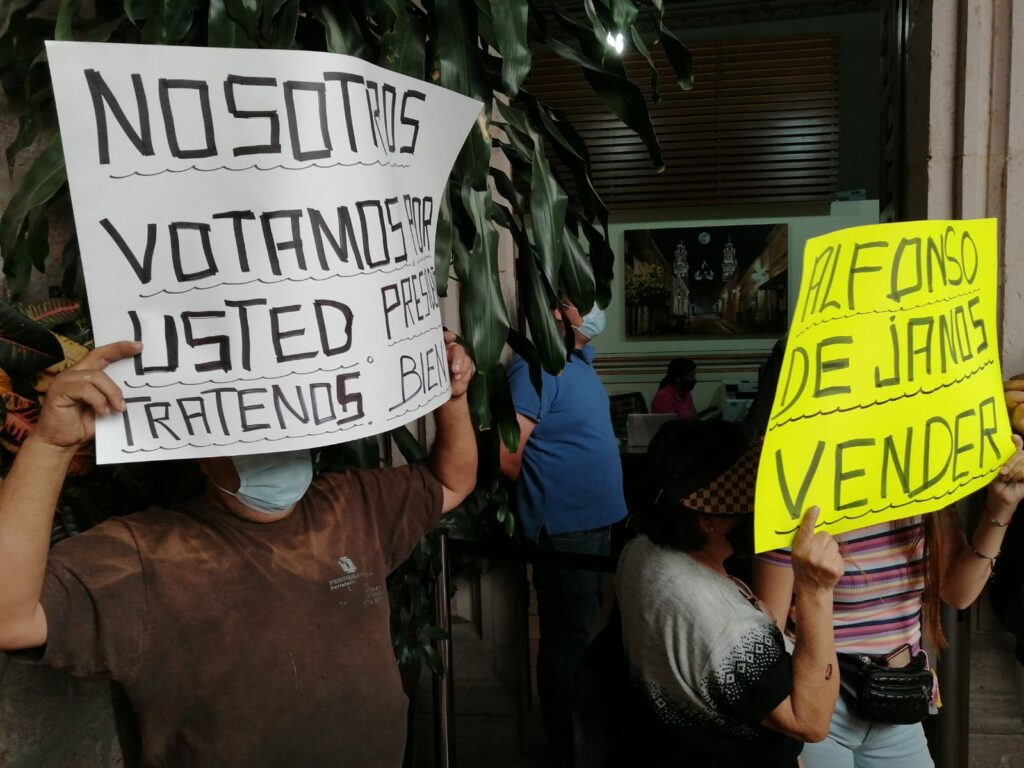 NOSOTROS
VOTAMOS POR
USTED PRESIDE
TRATENOS. BIEN
ALFONSO
DE JANOS
VENDER